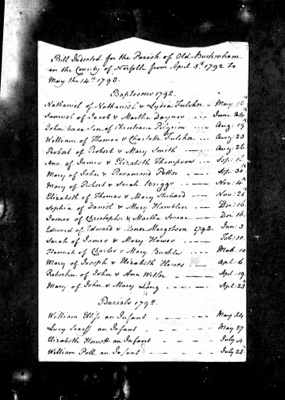 Bill Indented for the Parish of Old Buckenham
in the County of Norfolk from April 5th 1792 to
May the 14th 1793.
Baptisms 1792.
Nathaniel of Nathaniel & Lydia Fulcher May 10
Samuel of Jacob & Martha Daynes June 24
John base Son of Christian Pilgrim Aug: 19
William of Thomas & Charlotte Fulcher Aug: 23
Robert of Robert & Mary Smith Aug: 26
Ann of James & Elizabeth Thompson Sep: 1st
Mary of John & Rosamond Potter Sep: 30
Mary of Robert & Sarah Briggs Nov: 4
Elizabeth of Thomas & Mary Nov: 25
Sophia of Daniel & Mary Humbler Dec: 16
James of Christopher & Martha Dec: 16
Edward of Edward & Margetson 1793. Jan: 3
Sarah of James & Mary Howes Feb: 10
Hannah of Charles & Mary Mar: 10
Mary of Joseph & Elizabeth Howes Apl: 6
Rebekah of John & Ann Apl: 19
Mary of John & Mary Long Apl: 23
Burials 1792.
William Ellis an Infant May 24
Lucy an Infant May 27
Elizabeth Howett an Infant July 4
William Poll an Infant July 22